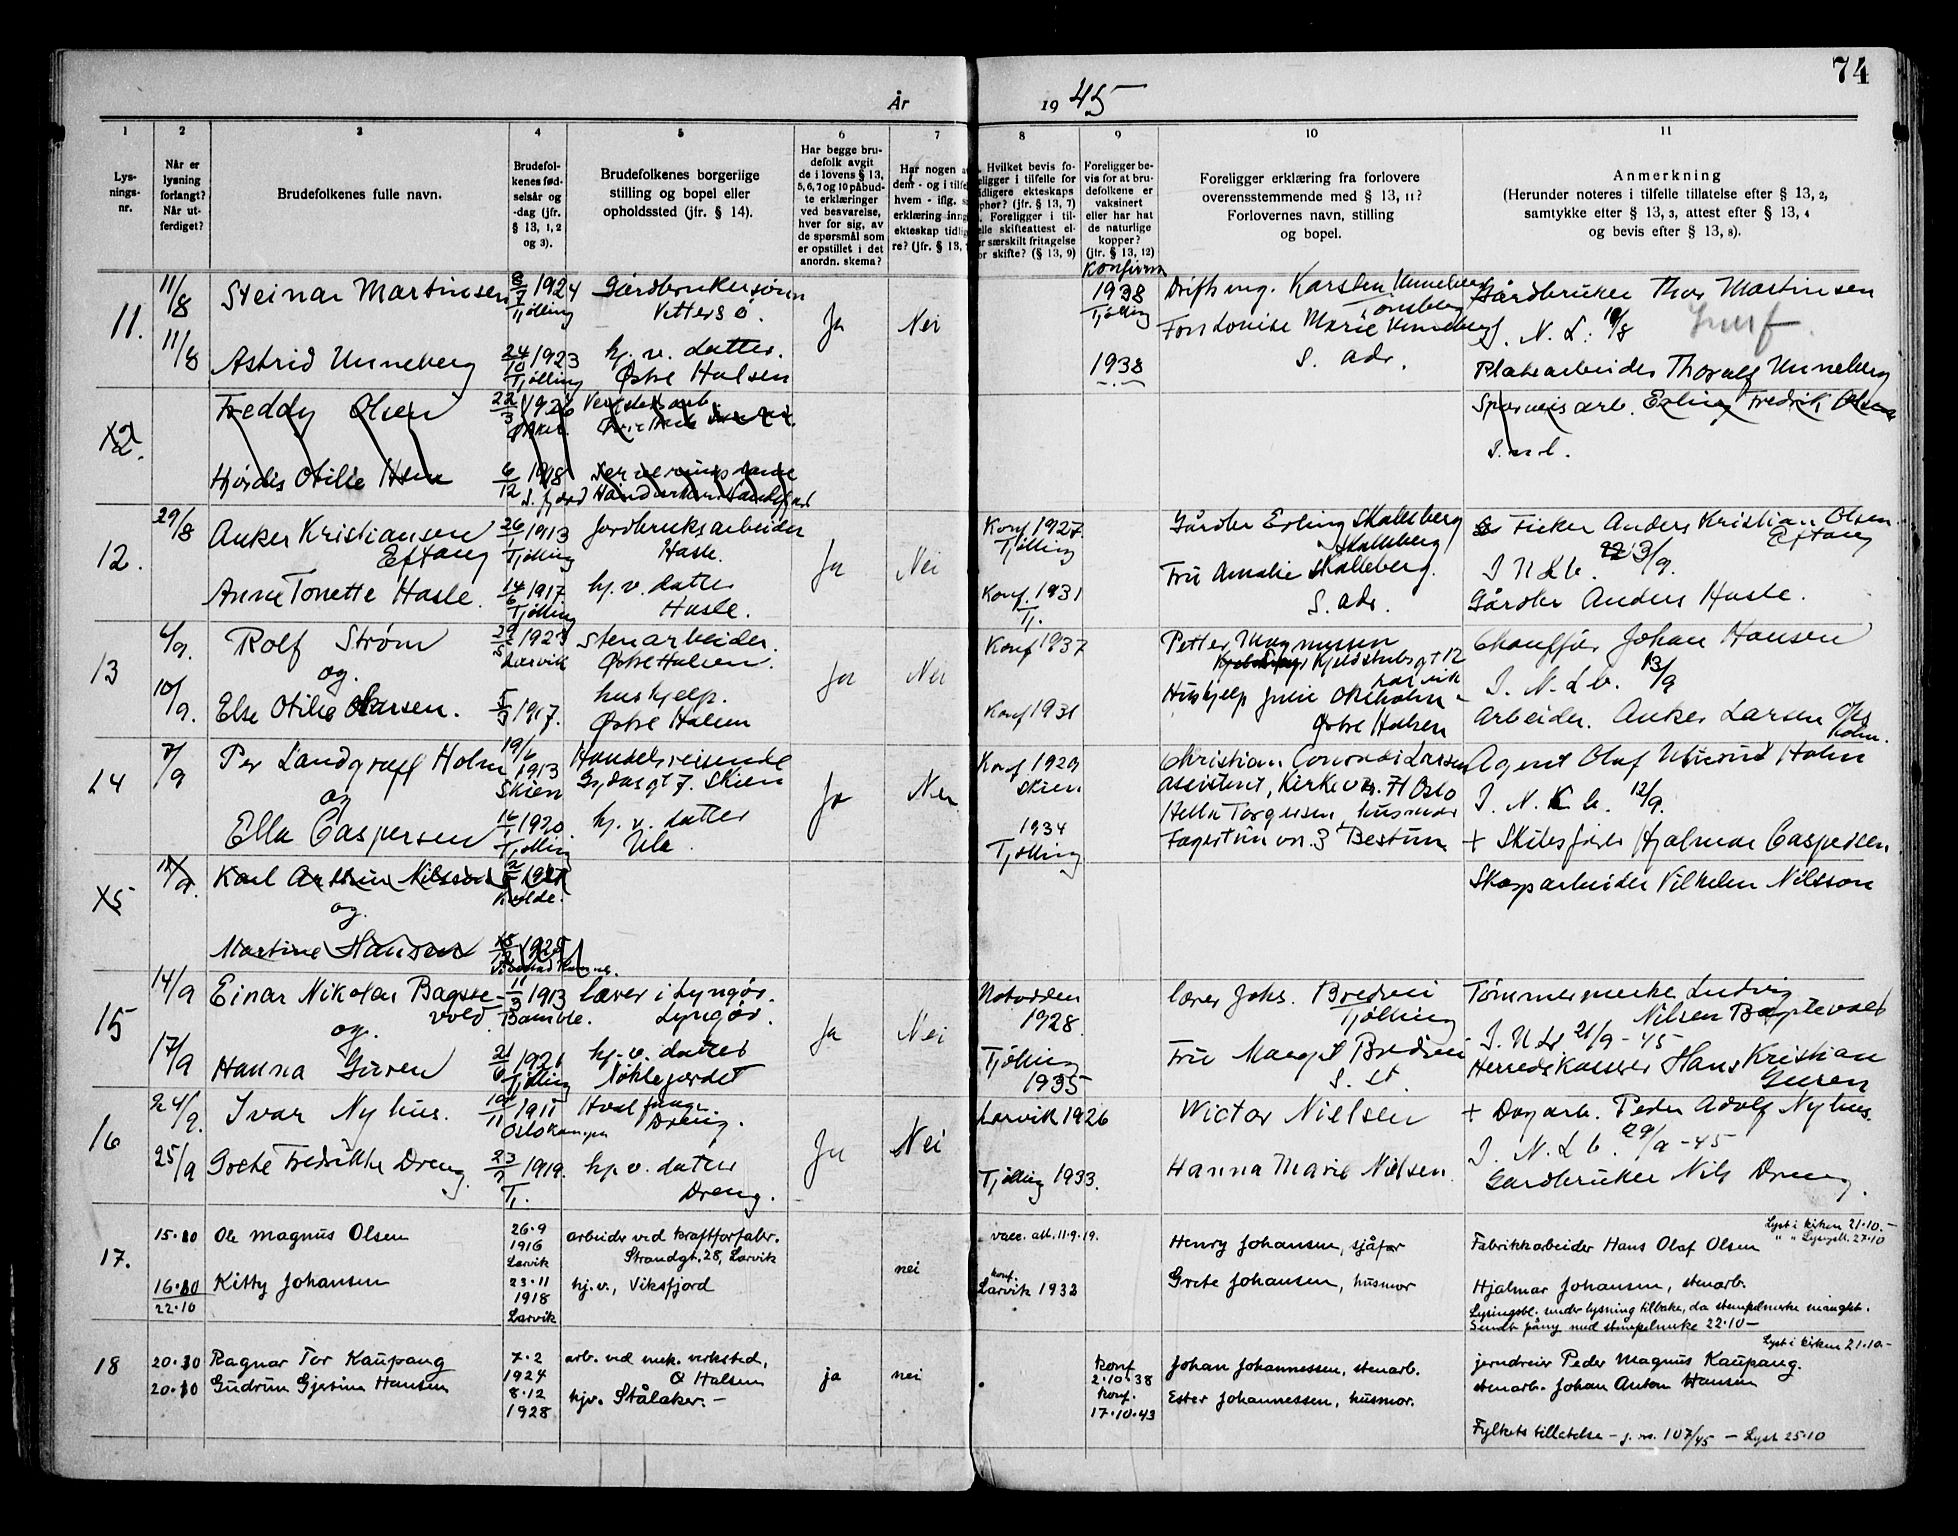 74
År
19 45
1
2
3
4
5
6
7
8
9
10
11
Lys-
nings-
nr.
Når er
lysning
forlangt?
Når ut-
ferdiget?
Brudefolkenes fulle navn.
Brudefol-
kenes fød-
selsår og
-dag (jfr.
§ 13, 1, 2
og 3).
Brudefolkenes borgerlige
stilling og bopel eller
opholdssted (jfr. § 14).
Har begge bru-
defolk avgit
de i lovens § 13,
5, 6, 7 og 10 påbud-
te erklæringer
ved besvarelse,
hver for sig, av
de spørsmål som
er opstillet i det
anordn. skema?
Har nogen a
dem - og i tilfe
hvem - iflg. s
erklæring inng
ekteskap tidlig
re? (jfr. § 13,
Hvilket bevis fo-
eligger i tilfelle for
idligere ekteskaps
ophør? (jfr. § 13, 7)
Foreligger i til-
elle skifteattest el-
r særskilt fritagelse
or skifte? (§ 13, 9)
Foreligger be-
vis for at bru-
defolkene er
vaksinert
eller har hat
de naturlige
kopper?
(jfr. § 13, 12)
Foreligger erklæring fra forlovere
overensstemmende med § 13, 11?
Forlovernes navn, stilling
og bopel.
Anmerkning
(Herunder noteres i tilfelle tillatelse efter § 13, 2,
samtykke efter § 13, 3, attest efter § 13, 4
og bevis efter § 13, 8).
11.
11/8
Steinar Martinsen
8/7 1924
Tjølling
Gårdbrukersønn
Vittersø.
Ja
Nei
Konfirm
1938
Tjølling
Drifts ing. Karsten Unneberg
Tønsberg
Gårdbruker Thor Martinsen
11/8
Astrid Unneberg
24/10 1923
Tjølling
hj. v. datter.
Østre Halsen
1938
Fru Louise Marie Unneberg
S. adr.
I. N. L: 18/8
Platearbeider Thoralf Unneberg
X2.
Freddy Olsen
22/3 1926
Sporveisarb. Erling Fredrik Olsen
I. n l.
Hjørdis Otilie
6/12 1918
S. fjord
12.
29/8
Anker Kristiansen
Eftang
26/1 1913
Tjølling
Jordbruksarbeider
Hasle.
Ja
Nei
Konf 1927.
Tjølling
Gårdbr Erling Skalleberg
Skalleberg
Fisker Anders Kristian Olsen
Eftang
I N L b. 13/9.
Anne Tonette Hasle.
14/6 1917.
Tjølling
hj. v. datter
Hasle.
Konf. 1931
Tj.
Fru Amalie Skalleberg.
S. adr.
Gårdbr Anders Hasle.
13
6/9.
Rolf Strøm
og.
29/5 1923
Larvik
Stenarbeider.
Østre Halsen.
Ja
Nei
Konf 1937
Petter Magnussen
Kjeldsbugt 12
Larvik
Chauffør Johan Hansen
I. N. L b. 13/9
10/9.
Else Otilie Larsen.
5/3 1917.
hushjelp.
Østre Halsen
Konf 1931
Hushjelp Julie Okeholm
Østre Halsen
Arbeider. Anker Larsen
14
7/9
Per Landgraff Holm
og
19/6 1913
Skien
Handelsreisende
Gydasgt 7. Skien
Ja
Nei
Konf 1929
Skien
Christian Conradi Larsen
assistent, Kirkevn. 71 Oslo
Agent Olaf Holm
I. N. L b. 12/9.
Ella Caspersen
16/1 1920.
Tjølling
hj. v. datter
Ula.
1934
Tjølling
Hella Torgersen, husmor
Fagertun vn. 3 Bestum
+ Skibsfører Hjalmar Caspersen
X5
Karl Arthur Nilsson
og.
Skogarbeider Vilhelm Nilsson
Martine Hansen
1925
15
14/9
Einar Nikolai Bagste-
vold.
og.
11/3 1913
Bamble.
lærer i Lyngør.
Lyngør.
Ja
Nei
Notodden
1928.
lærer Johs. Bredvei
Tjølling
Tømmermerker Ludvig
Nilsen
I. N L 21/9-45
17/9
Hanna Guren
21/6 1921
Tjølling
hj. v. datter
Nøklegårdet
Tjølling
1935
Fru Margit Bredvei
S. st.
Herredskasserer Hans Kristian
Guren
16
24/9.
Ivar Nyhus.
1911
Hvalfanger.
Dreng.
Ja
Nei
Larvik 1926
Wictor Nielsen
+ Dagarb. Peder Adolf Nyhus.
I. N. L b. 29/9-45
25/9
Grete Fredrikke Dreng
23/2 1919.
T.
hj. v. datter
Dreng.
Tjølling 1933.
Hanna Marie Nielsen.
Gardbruker Nils Dreng.
17.
15.10
Ole Magnus Olsen
26.9
1916
Larvik
arbeider ved kraftforfabr.
Strandgt. 28, Larvik
vacc. att. 11.9.19.
Henry Johansen, sjåfør
Lyst i kirken 21.10.-
" " Lysingsbl. 27.10
Fabrikkarbeider Hans Olaf Olsen
nei
16.10
22.10
Kitty Johansen
23.11
1918
Larvik
hj.v., Viksfjord
konf.
Larvik 1932
Grete Johansen, husmor
Hjalmar Johansen, stenarb.
Lysingsbl. under lysning tilbake, da stempelmerke manglet.
Sendt påny med stempelmerke 22.10-
18
20.10
Ragnar Tor Kaupang
7.2
1924
arb. ved mek. verksted,
Ø Halsen
ja
nei
konf
2.10.38
Johan Johannessen, stenarb.
Lyst i kirken 21.10-
jerndreier Peder Magnus Kaupang.
20.10
Gudrun Gjertine Hansen
8.12
1928
hjv. Stålaker.-
konf.
17.10.43
Ester Johannessen, husmor.
stenarb. Johan Anton Hansen
Fylkets tillatelse - j. nr. 107/45 - Lyst 25.10